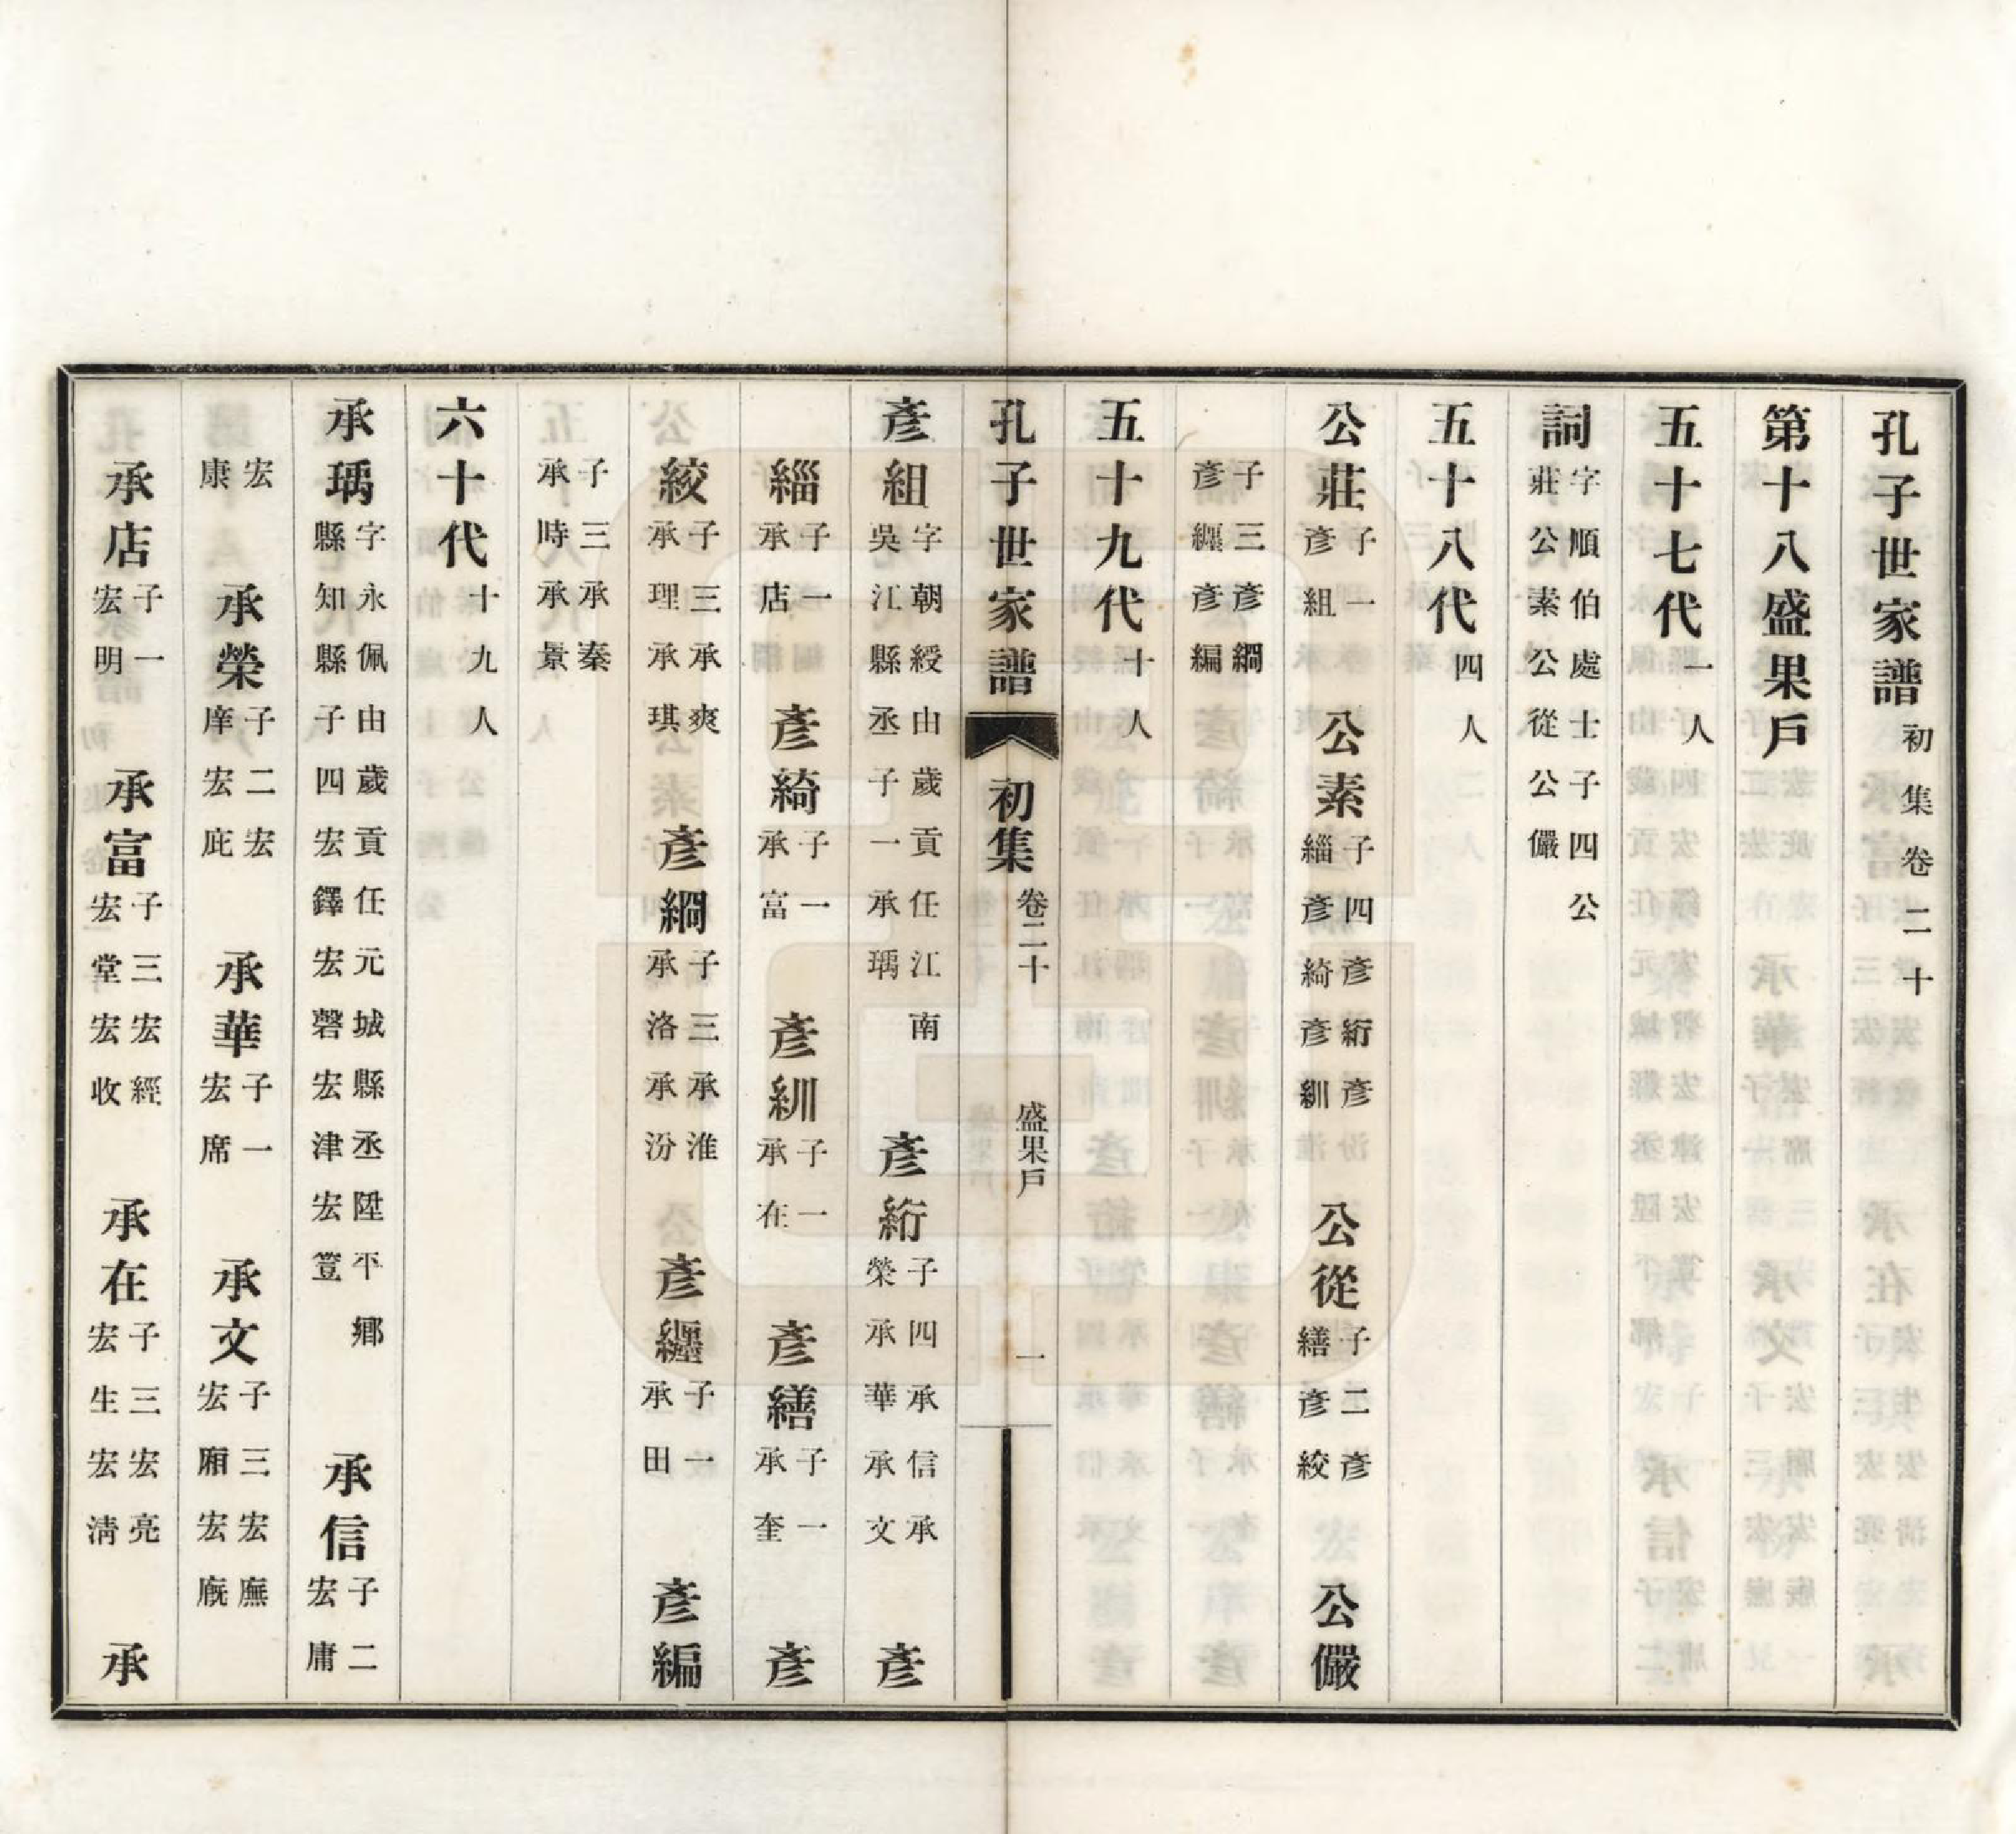 孔子世家譜初集卷二十
第十八盛果戶
五十七代一人
詞字順伯處士子四公莊公素公從公儼
五十八代四人
公莊子一彥組 公素子四彥絎彥緇彥綺彥紃 公從子二彥繕彥絞 公儼
子三彥綱彥纒彥編
五十九代十人
孔子世家譜 初集 卷二十 盛果戶 一
彥組字朝綬由歲貢任江南吳江縣丞子一承瑀 彥絎子四承信承榮承華承文 彥
緇子一承店 彥綺子一承富 彥紃子一承在 彥繕子一承奎 彥
絞子三承爽承理承琪 彥綱子三承淮承洛承汾 彥纒子一承田 彥編
子三承秦承時承景
六十代十九人
承瑀字永佩由歲貢任元城縣丞陞平鄉縣知縣子四宏鐸宏磬宏津宏荳 承信子二宏庸
宏康 承榮子二宏庠宏庇 承華子一宏席 承文子三宏廡宏廂宏廐
承店子一宏明 承富子三宏經宏堂宏收 承在子三宏亮宏生宏淸 承